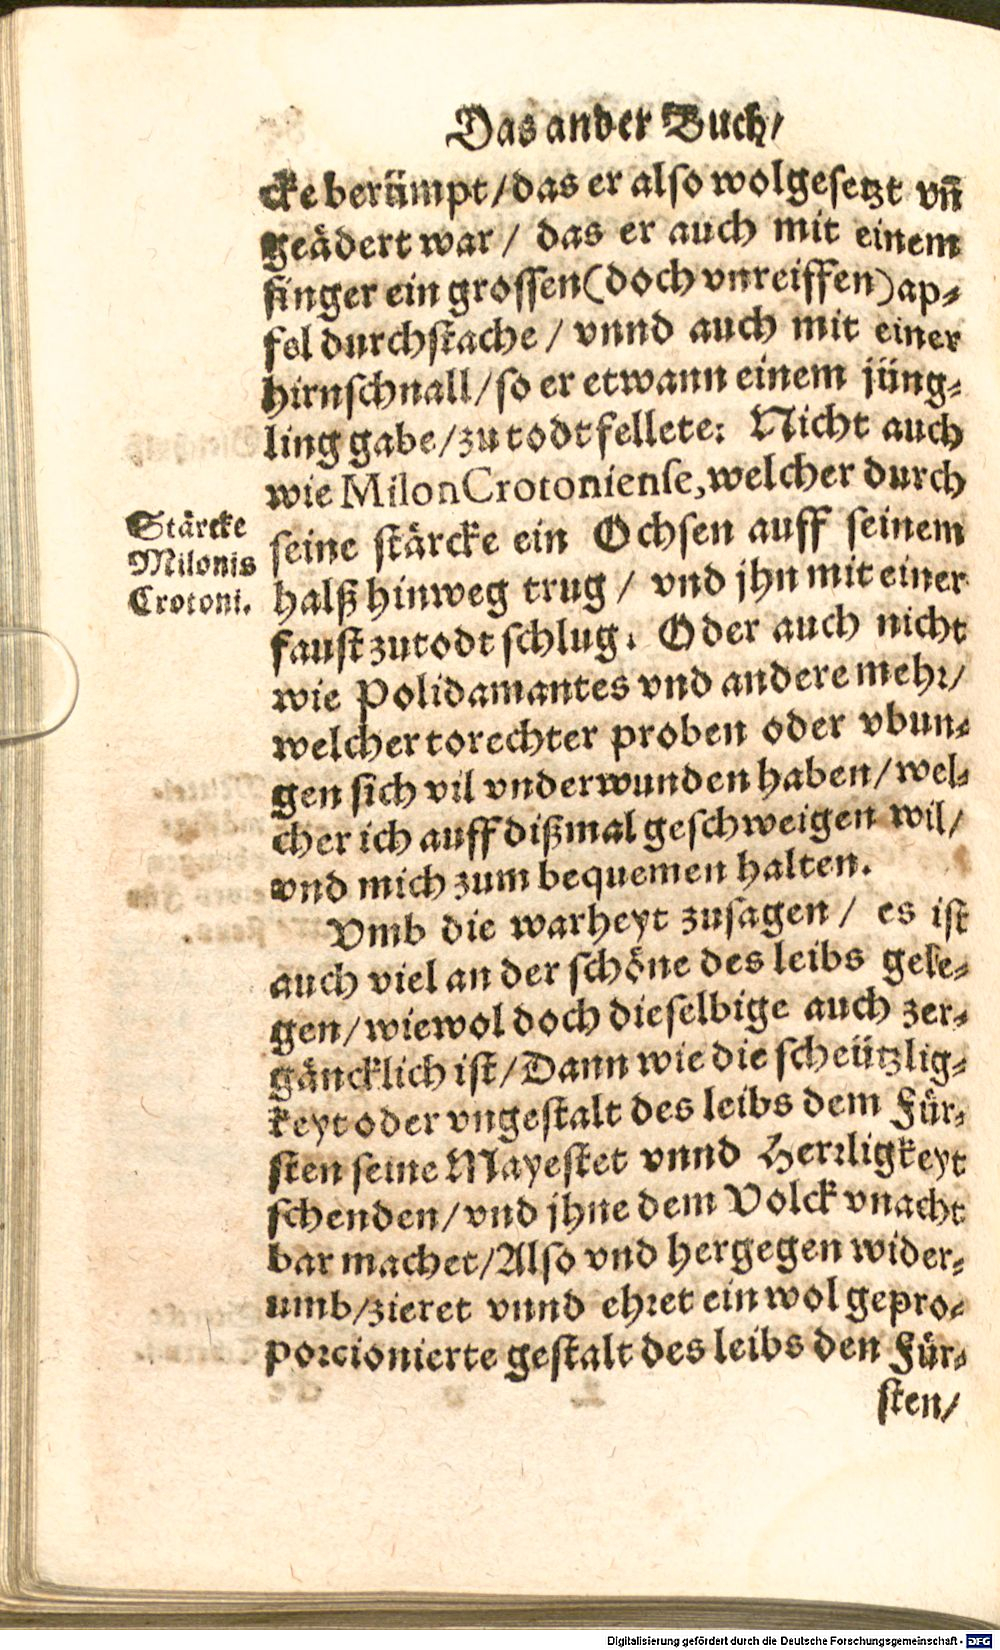 Das ander Buch/
cke berümpt/das er also wolgesetzt vñ
geädert war / das er auch mit einem
finger ein grossen(doch vnreiffen)ap⸗
fel durchstache / vnnd auch mit einer
hirnschnall/so er etwann einem jüng⸗
ling gabe/zu todt fellete: Nicht auch
wie Milon Crotoniense, welcher durch
seine stärcke ein Ochsen auff seinem
halß hinweg trug / vnd jhn mit einer
faust zu todt schlug. Oder auch nicht
wie Polidamantes vnd andere mehr/
welcher torechter proben oder vbun⸗
gen sich vil vnderwunden haben/wel⸗
cher ich auff dißmal geschweigen wil/
vnd mich zum bequemen halten.
Stärcke
Milonis
Crotoni.
Vmb die warheyt zusagen / es ist
auch viel an der schöne des leibs gele⸗
gen/wiewol doch dieselbige auch zer⸗
gäncklich ist/Dann wie die scheützlig⸗
keyt oder vngestalt des leibs dem Für⸗
sten seine Mayestet vnnd Herrligkeyt
schenden/vnd jhne dem Volck vnacht
bar machet/Also vnd hergegen wider⸗
umb/zieret vnnd ehret ein wol gepro⸗
porcionierte gestalt des leibs den Für⸗
sten/
Digitalisierung gefördert durch die Deutsche Forschungsgemeinschaft - DFG